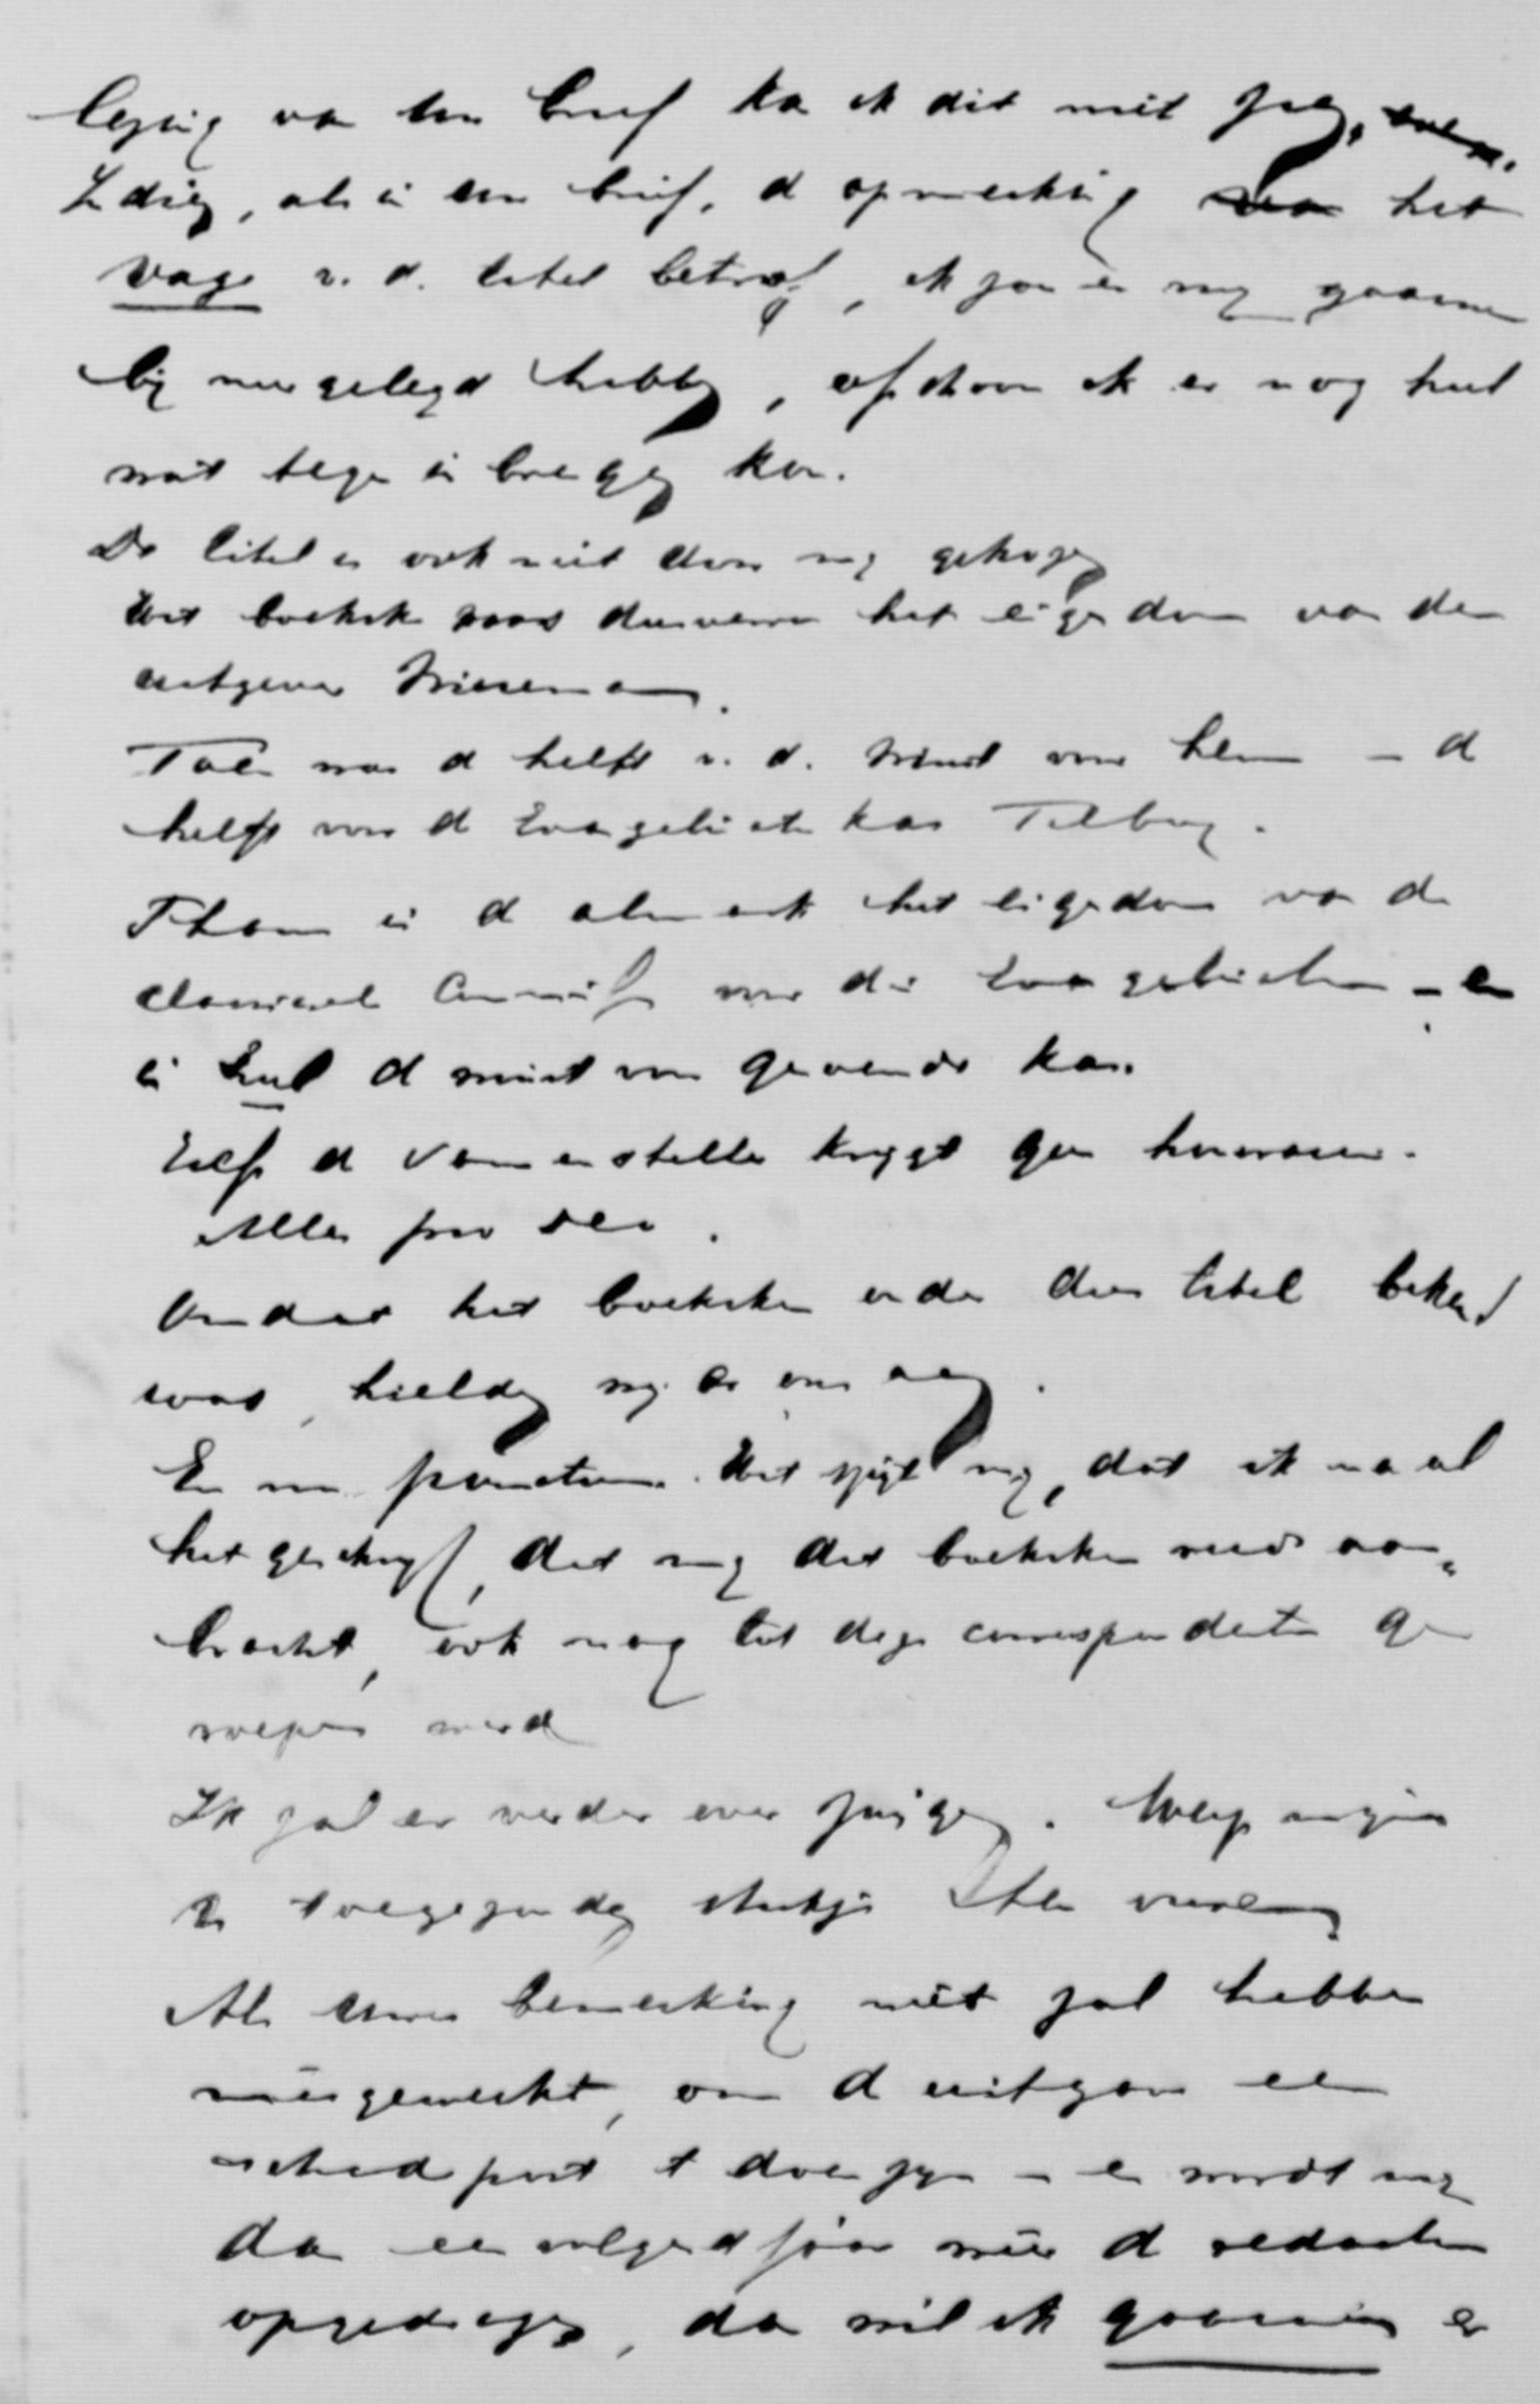 lezing van een brief kan ik dit niet
Zdig, als in een brief, de opmerking het
vage v. d. titel betreft, ik zou er mij gaarne
bij neergelegd hebben, ofschoon ik er nog heel
niet tegen in brengen kan.
De titel is ook niet door mij gekozen
Het boekske was dusverre het eigendom van den
uitgever Wiereman.
Toen was de helft v. d. winst voor hem – de
helft voor de Evangelisatie kas Tilburg.
Thans is de almanak het eigendom van de
classicale Commissie voor de Evangelisatie – en
is heel de winst voor gevende kas.
Zelfs de samensteller krijgt geen honorarium.
Alles pro deo.
Omdat het boekske onder dien titel bekend
was, hielden wij er ons aan.
En nu punctum. Het spijt mij, dat ik na al
het geschrijf, dat mij dat boekske reeds aan-
bracht, ook nog tot deze correspondentie ge-
roepen werd
Ik zal er verder over zwijgen.
toegezonden stukje
Als Uwe bemerking niet zal hebben
meegewerkt, om de uitgave een
schadepost te doen zijn – en wordt mij
dan een volgend jaar weer de redactie
opgedragen, dan wil ik gaarne